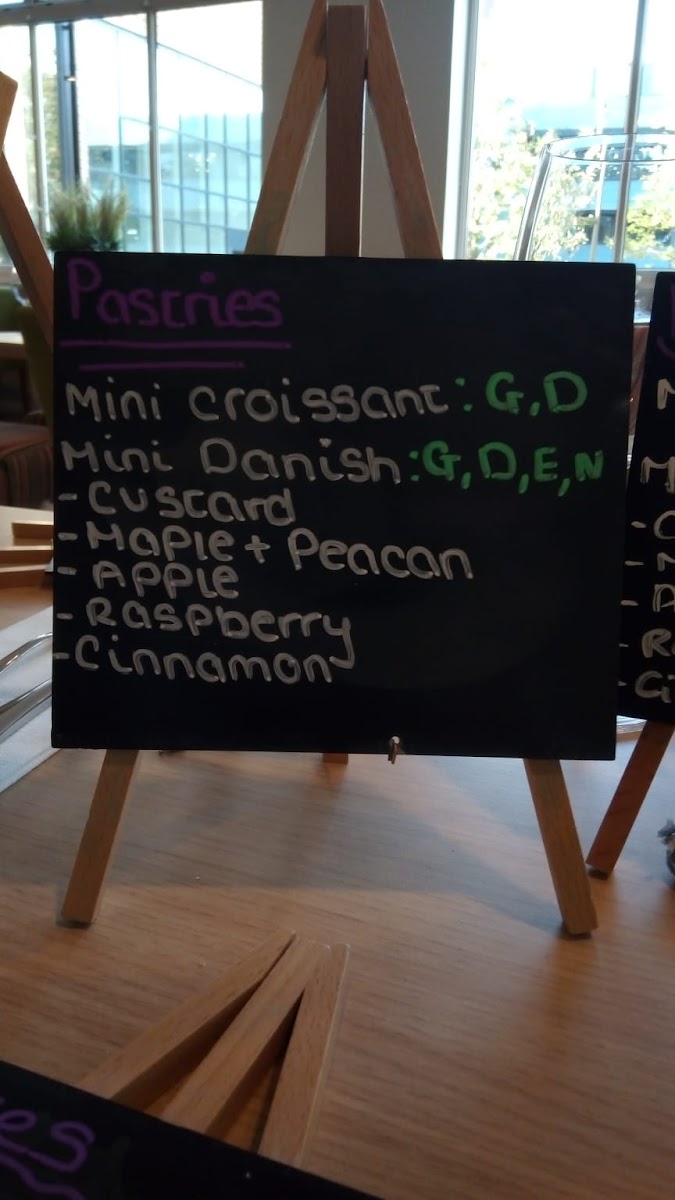 Pastries
Mini Croissant: G,D
Mini Danish: G, D, E, N
- Custard
- Maple + Peacan
- Apple
- Raspberry
- Cinnamon